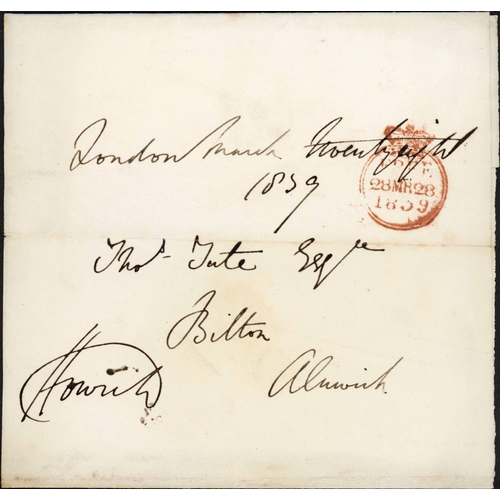 London March Twentyeight
1839
FREE
28MR28
1839
Thos Tate Esqre
Bilton
Howick
Alnwick